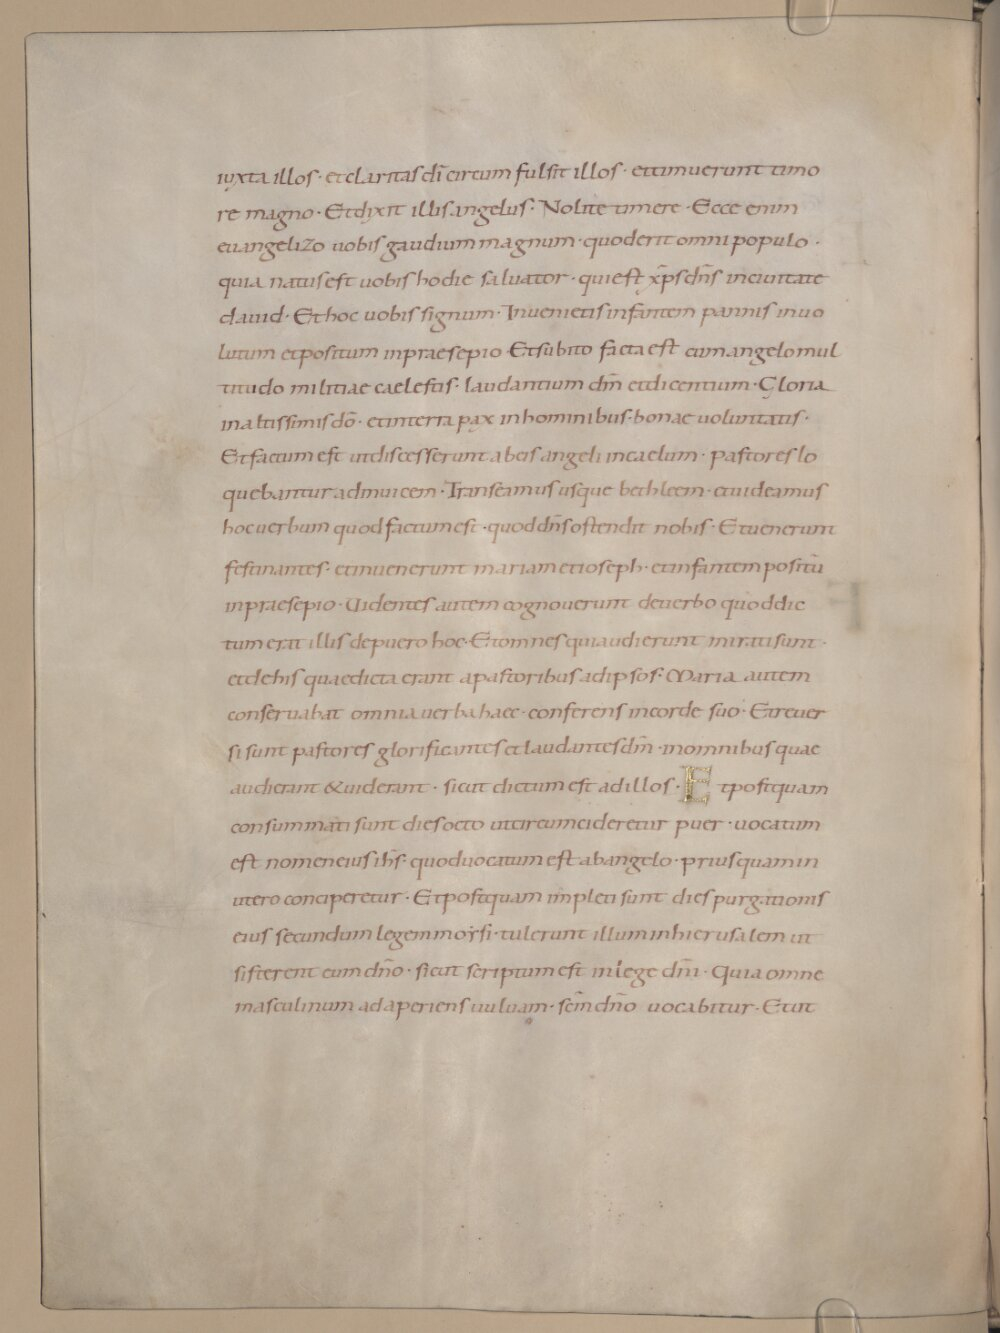 iuxta illos · et claritas dī circum fulsit illos · et timuerunt timo
re magno · Et dixit illis angelus · Nolite timere · Ecce enim
euangelizo uobis gaudium magnum · quod erit omni populo ·
quia natus est uobis hodie saluator · qui est xp̄s dn̄s in ciuitate
dauid · Et hoc uobis signum · Inuenietis infantem pannis inuo
lutum et positum in praesepio · Et subito facta est cum angelo mul
titudo militiae caelestis · laudantium dm̄ et dicentium · Gloria
in altissimis dō · et in terra pax in hominibus bonae uoluntatis ·
Et factum est ut discesserunt ab eis angeli in caelum · pastores lo
quebantur ad inuicem · Transeamus usque bethleem · et uideamus
hoc uerbum quod factum est · quod dn̄s ostendit nobis · Et uenerunt
festinantes · et inuenerunt mariam et ioseph · et infantem positū
in praesepio · Uidentes autem cognouerunt de uerbo quod dic
tum erat illis de puero hoc · Et omnes qui audierunt mirati sunt ·
et de his quae dicta erant a pastoribus ad ipsos · Maria autem
conseruabat omnia uerba haec · conferens in corde suo · Et reuer
si sunt pastores glorificantes et laudantes dm̄ · in omnibus quae
audierant & uiderant · sicut dictum est ad illos · Et postquam
consummati sunt dies octo ut circumcideretur puer · uocatum
est nomen eius ih̄s · quod uocatum est ab angelo · prius quam in
utero conciperetur · Et postquam impleti sunt dies purgationis
eius secundum legem moysi · tulerunt illum in hierusalem ut
sisterent eum dn̄o · sicut scriptum est in lege dn̄i · Quia omne
masculinum adaperiens uuluam · sc̄m dn̄o uocabitur · Et ut